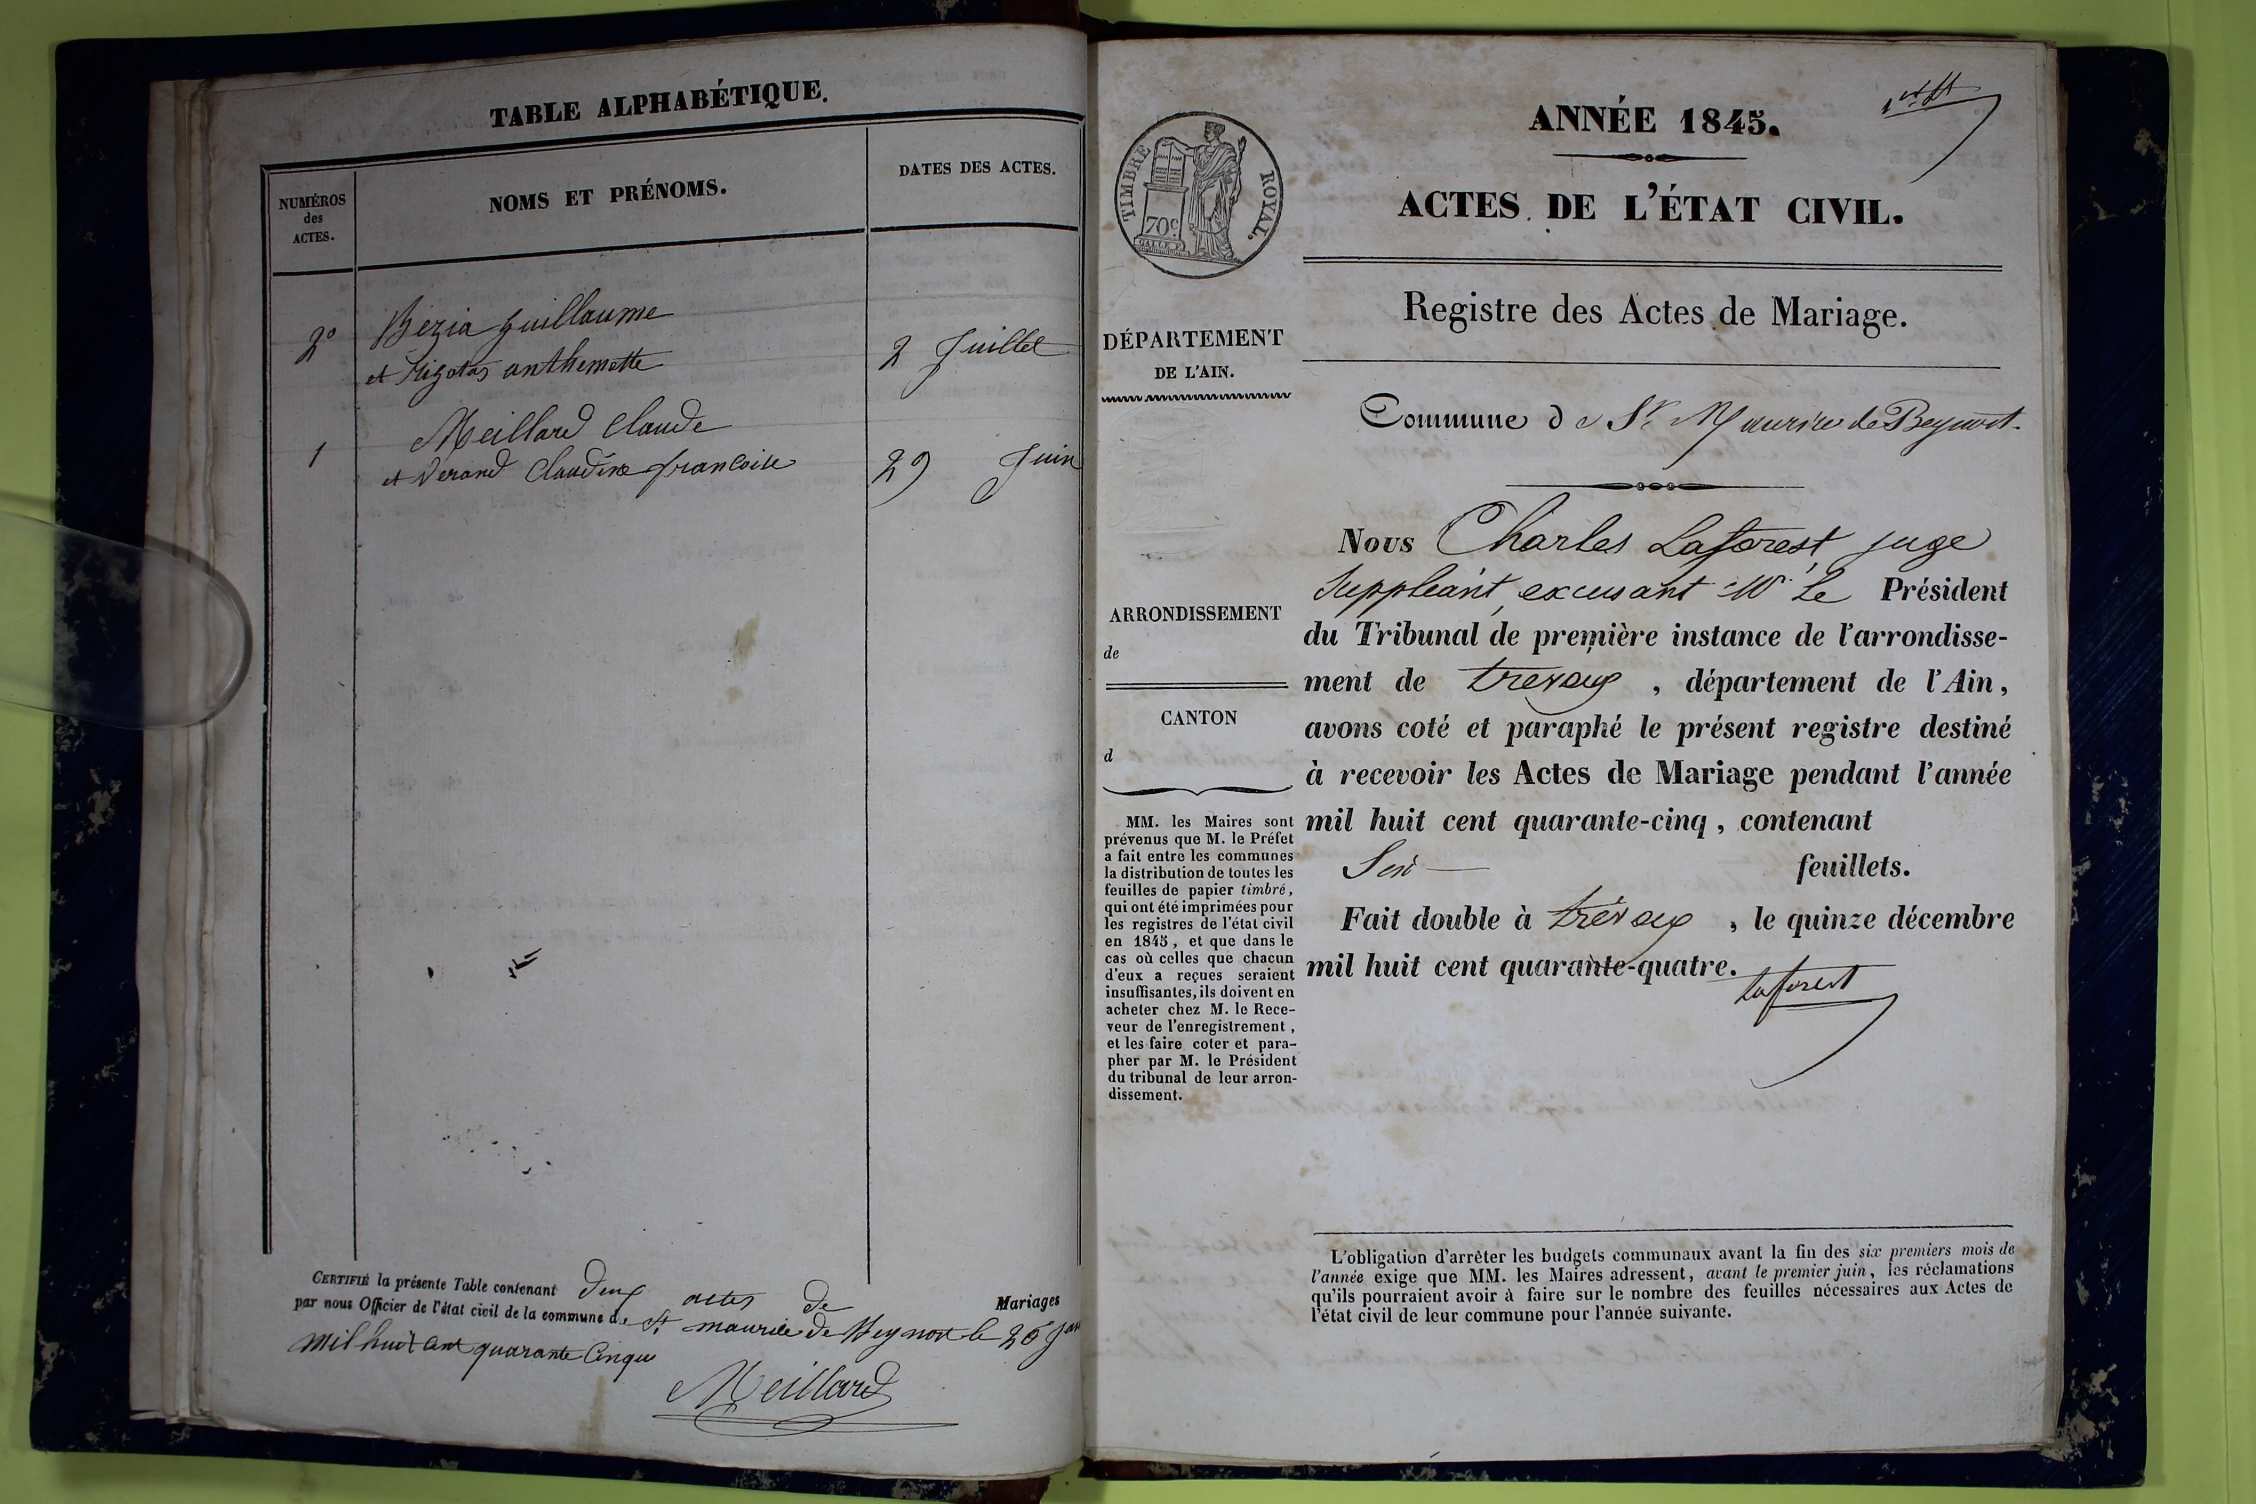 TABLE ALPHABÉTIQUE.
NUMÉROS
des
ACTES.
NOMS ET PRÉNOMS.
DATES DES ACTES.
2° Bezia guillaume
et Rigotas anthemette
2 Juillet
1 Meillard Claude
et Verand Claudine francoise
29 Juin
CERTIFIÉ la présente Table contenant deux actes de Mariages
par nous Officier de l'état civil de la commune de St. maurice de Beynost le 26 Jan
mil huit cent quarante Cinque
Meillard
1er ft
ANNÉE 1845.
ACTES DE L'ÉTAT CIVIL.
Registre des Actes de Mariage.
TIMBRE ROYAL.
70c
DÉPARTEMENT
DE L'AIN.
Commune de St. Maurice de Beynost.
ARRONDISSEMENT
de
CANTON
d
MM. les Maires sont
prévenus que M. le Préfet
a fait entre les communes
la distribution de toutes les
feuilles de papier timbré,
qui ont été imprimées pour
les registres de l'état civil
en 1845, et que dans le
cas où celles que chacun
d'eux a reçues seraient
insuffisantes, ils doivent en
acheter chez M. le Rece-
veur de l'enregistrement,
et les faire coter et para-
pher par M. le Président
du tribunal de leur arron-
dissement.
Nous Charles Laforest juge
Suppléant, excusant Mr. Le Président
du Tribunal de première instance de l'arrondisse-
ment de trevoux, département de l'Ain,
avons coté et paraphé le présent registre destiné
à recevoir les Actes de Mariage pendant l'année
mil huit cent quarante-cinq, contenant
Six feuillets.
Fait double à trévoux, le quinze décembre
mil huit cent quarante-quatre.
Laforest
L'obligation d'arrêter les budgets communaux avant la fin des six premiers mois de
l'année exige que MM. les Maires adressent, avant le premier juin, les réclamations
qu'ils pourraient avoir à faire sur le nombre des feuilles nécessaires aux Actes de
l'état civil de leur commune pour l'année suivante.